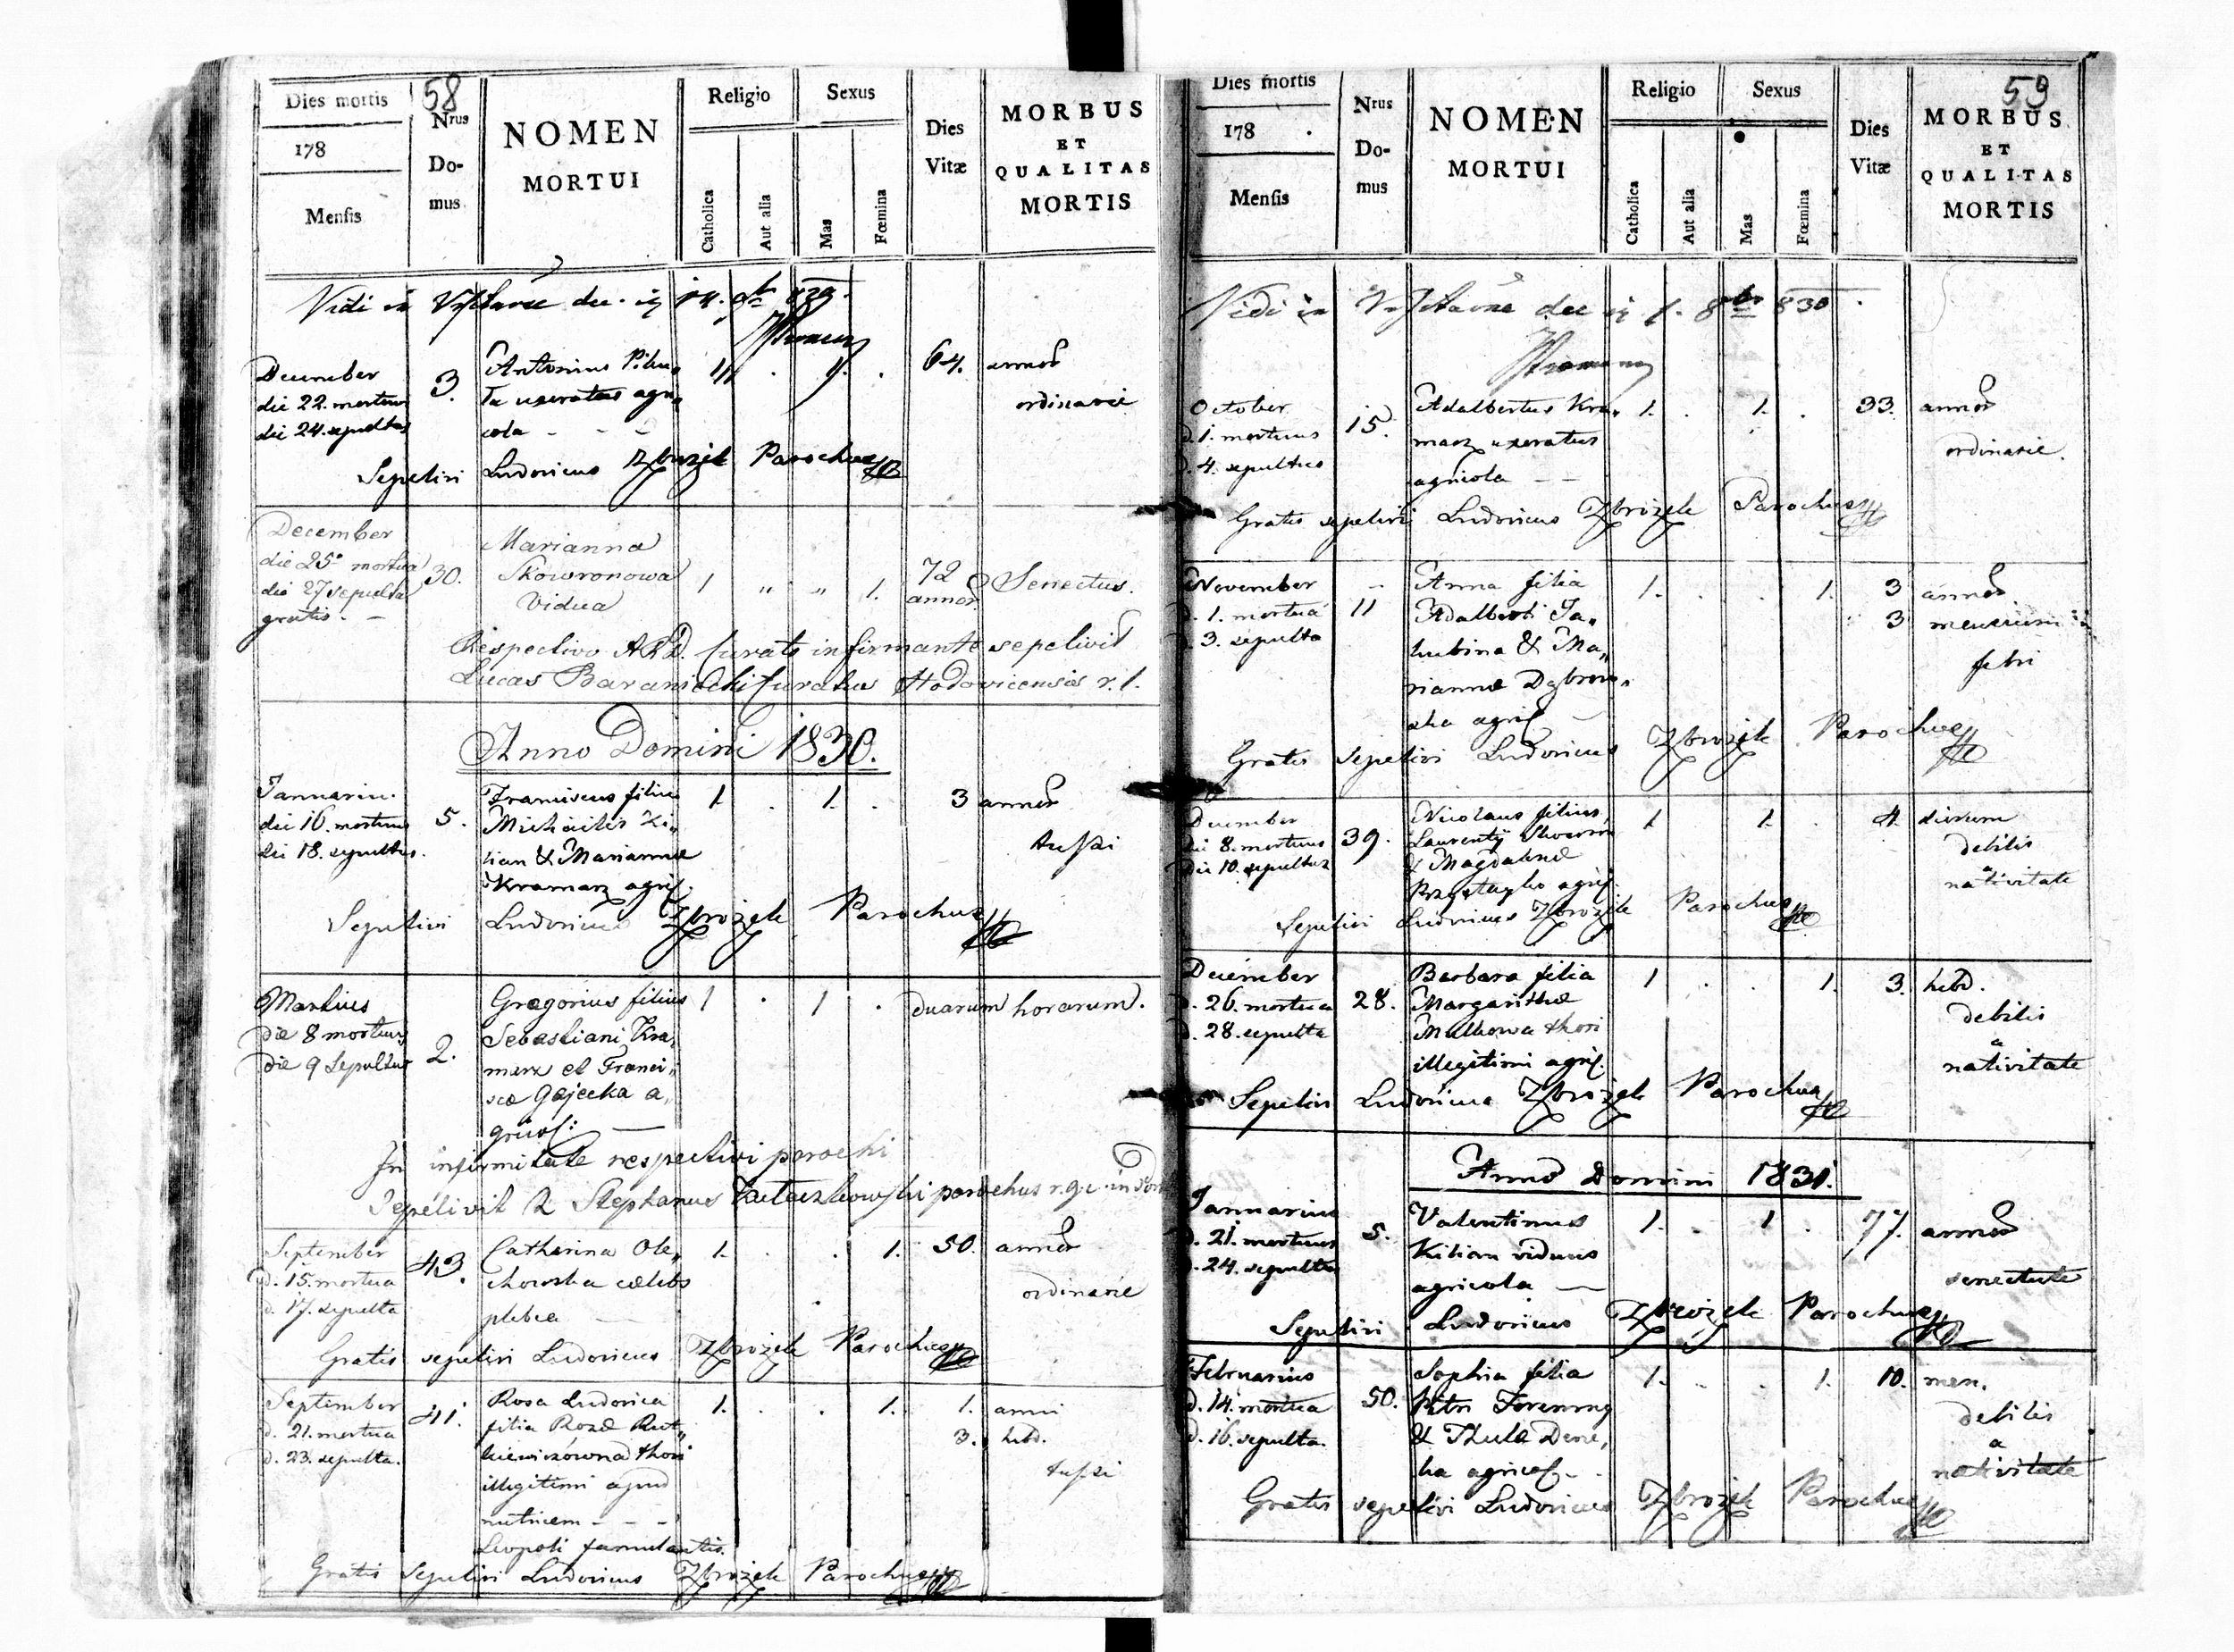 58
Dies mortis
178
Mensis
Nrus
Do-
mus
NOMEN
MORTUI
Religio
Catholica
Aut alia
Sexus
Mas
Fœmina
Dies
Vitæ
MORBUS
ET
QUALITAS
MORTIS
Vidi in
December 3. Antonius Pilus„ 1 . 1. . 64. annor
die 22. mortuus ta uxoratus agri„ ordinarie
die 24. sepultus cola - - -
Sepelivi Ludovicus Zbrożek Parochus
December Marianna
die 25. mortua 30. Skowronowa 1 „ „ 1. 72 Senectus.
die 27 sepulta Vidua annor
gratis. -
Respectivo A.R.D. Curato infirmante sepelivit
Lucas Baraniecki Curatus Hodovicensis r. l.
Anno Domini 1830.
Januarius Franciscus filius 1. . 1. . 3 annor
die 16. mortuus 5. Michaelis Ki„ tussi
die 18. sepultus. lian & Marianna
Kramarz agric.
Sepelivi Ludovicus Zbrożek Parochus
Martius Gregorius filius 1 . 1 . duarum horarum.
die 8 mortuus 2. Sebastiani Kra„
die 9 Sepultus marz et Franci„
scæ Gajecka a„
gricol: —
In infirmitate respectivi parochi
Sepelivit Stephanus parochus r.g.c. in
September 43. Catharina Ole„ 1. . . 1. 50. annor
d. 15. mortua chowska cælebs ordinarie
d. 17. sepulta plebea —
Gratis sepelivi Ludovicus Zbrożek Parochus
September 41. Rosa Ludovica 1. . . 1. 1. anni
d. 21. mortua filia Rozæ Rut„ 3. hebd.
d. 23. sepulta. kiewiczówna thori tussi
illegitimi apud
nutricem - - -
Leopoli famulantis.
Gratis Sepelivi Ludovicus Zbrożek Parochus
59
Dies mortis
178 .
Mensis
Nrus
Do-
mus
NOMEN
MORTUI
Religio
Catholica
Aut alia
Sexus
Mas
Fœmina
Dies
Vitæ
MORBUS
ET
QUALITAS
MORTIS
Vidi in 830
October 15. Adalbertus Kra„ 1. . 1. . 33. annor
d. 1. mortuus marz uxoratus ordinarie.
d. 4. sepultus agricola - -
Gratis sepelivi Ludovicus Zbrożek Parochus
November - Anna filia 1. . . 1. 3 annor
d. 1. mortua 11 Adalberti Ja„ 3 mensium
d. 3. sepulta kubina & Ma„ febri
riannæ Dąbrow„
ska agric —
Gratis Sepelivi Ludovicus Zbrożek Parochus
December Nicolaus filius 1 1. . 4. dierum
die 8. mortuus 39. Laurentij Skowron debilis
die 10. sepultus & Magdalenæ a
agric. nativitate
Sepelivi Ludovicus Zbrożek Parochus
December Barbara filia 1 . . 1. 3. hebd.
d. 26. mortua 28. Margarithæ debilis
d. 28. sepulta Mulkowa thori a
illegitimi agric. nativitate
Sepelivi Ludovicus Zbrożek Parochus
Anno Domini 1831.
Januarius Valentinus 1. . 1 . 77. annor
d. 21. mortuus 5. Kilian viduus
d. 24. sepultus agricola — senectute
Sepelivi Ludovicus Zbrożek Parochus
Februarius Sophia filia 1. . . 1. 10. men.
d. 14. mortua 50. Petri debilis
d. 16. sepulta. & Theklæ Dere„ a
ha agricol - . nativitate
Gratis sepelivi Ludovicus Zbrożek Parochus